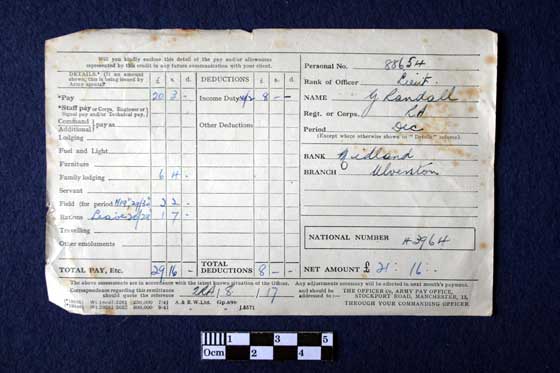 Will you kindly enclose this detail of the pay and/or allowances
represented by this credit in any future communication with your client.
DETAILS.* (If an amount
shown, this is being issued by
Army agents)
£ s. d.
DEDUCTIONS
£ s. d.
*Pay 20 3 -
Income Duty 8 - -
*Staff pay or Corps, Engineer or
Signal pay and/or Technical pay.
Command
Additional
pay as
Other Deductions
Lodging
Fuel and Light
Furniture
Family lodging 6 4 -
Servant
Field (for period 2 2 -
Rations Leave 1 7 -
Travelling
Other emoluments
TOTAL PAY, Etc. 29 16 -
TOTAL
DEDUCTIONS 8 - -
Personal No. 88654
Rank of Officer Lieut.
NAME G Randall
Regt. or Corps. RA
Period Dec
(Except where otherwise shown in "Details" column).
BANK Midland
BRANCH Ulverston
NATIONAL NUMBER H3964
NET AMOUNT £ 21 : 16 :
The above assessments are in accordance with the latest known situation of the Officer. Any adjustments necessary will be effected in next month's payment.
Correspondence regarding this remittance
should quote the reference
and should be
addressed to:-
THE OFFICER i/c, ARMY PAY OFFICE,
STOCKPORT ROAD, MANCHESTER, 13,
THROUGH YOUR COMMANDING OFFICER
A. & E. W. Ltd. Gp.698
J.8571
0cm 1 2 3 4 5